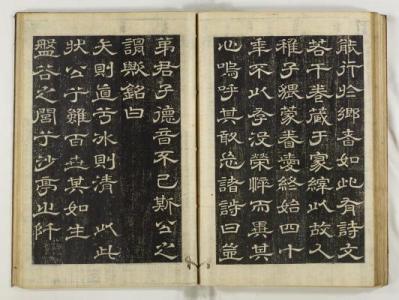 行於鄉者如此有詩文
若干卷藏于家緯以故人
稚子猥蒙眷愛終始四十
年不以存沒榮悴而異其
心嗚呼其敢忘諸詩曰豈
弟君子德音不已斯公之
謂歟銘曰
矢則直若冰則清以此
狀公兮雖百世其如生
盤谷之閭兮沙亭之阡